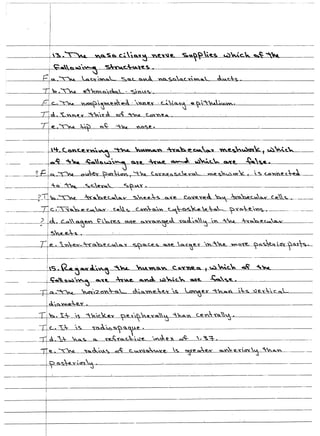 13. The nasociliary nerve supplies which of the
following structures.
F a. The lacrimal sac and nasolacrimal ducts.
T b. The ethmoidal sinus.
F c. The nonpigmented inner ciliary epithelium.
T d. Inner third of the cornea.
T e. The tip of the nose.
14. Concerning the human trabecular meshwork, which
of the following are true and which are false.
?F a. The outer portion, The Corneoscleral meshwork, is connected
to the scleral spur.
?T b. The trabecular sheets are covered by trabecular cells.
T c. Trabecular cells contain cytoskeletal proteins.
? d. Collagen fibres are arranged radially in the trabecular
sheets.
T e. Inter-trabecular spaces are larger in the more posterior parts.
15. Regarding the human cornea, which of the
following are true and which are false.
T a. The horizontal diameter is longer than its vertical
diameter.
T b. It is thicker peripherally than centrally.
T c. It is radiopaque.
T d. It has a refractive index of 1.37.
T e. The radius of curvature is greater anteriorly than
posteriorly.